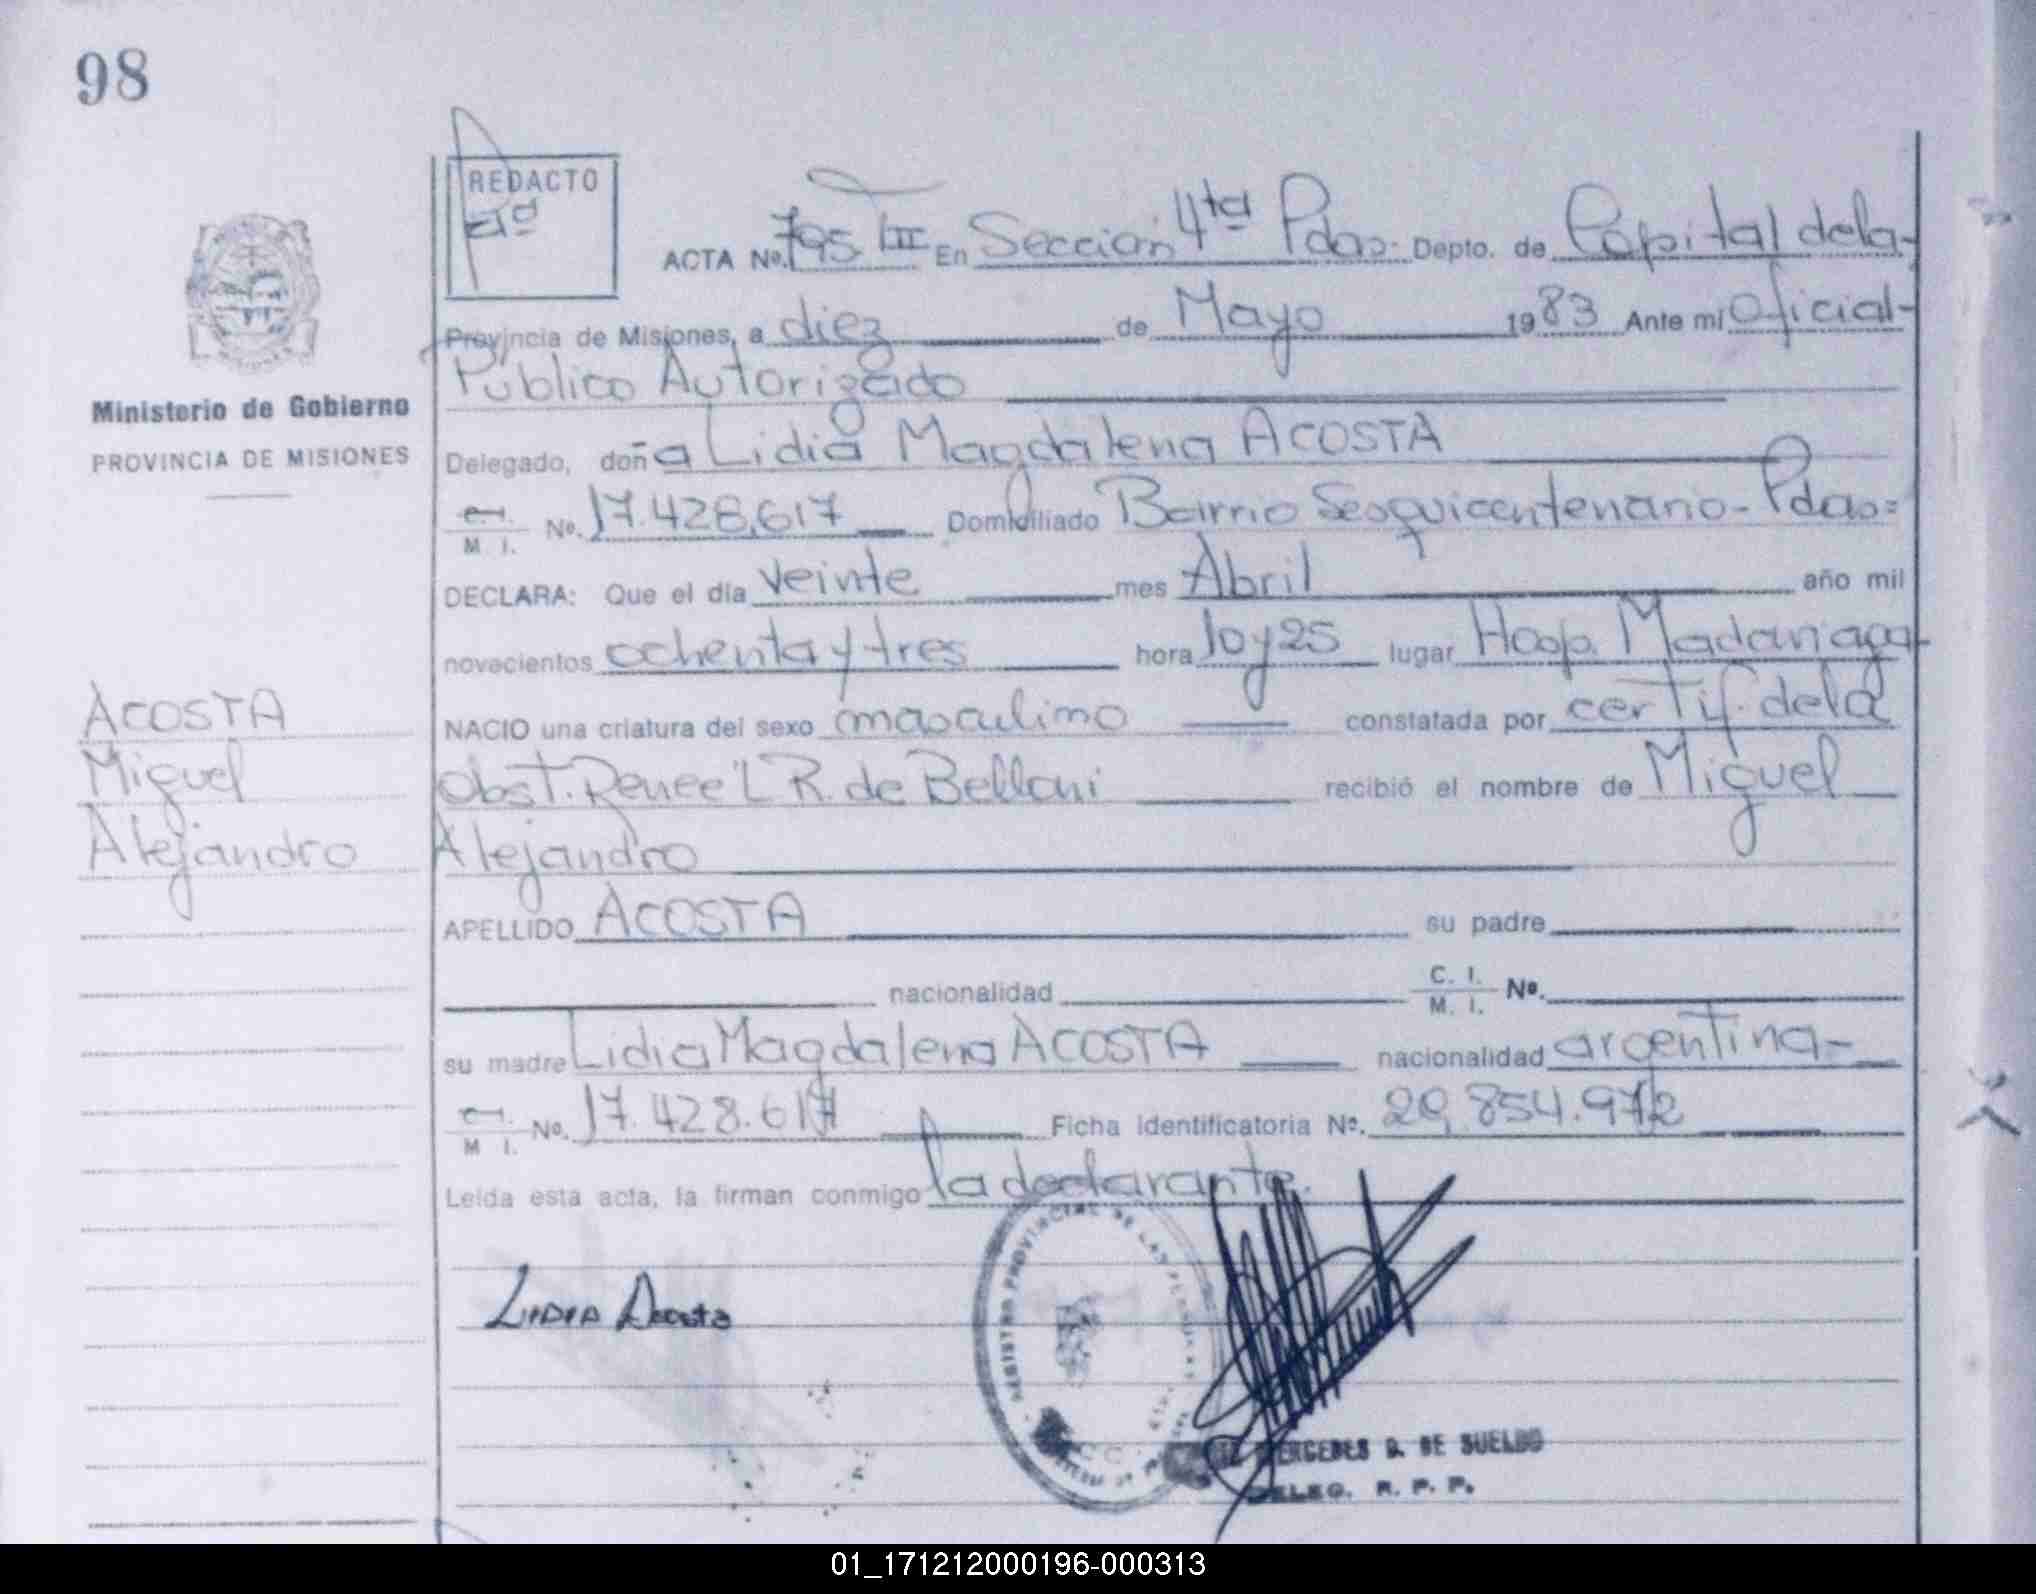 98
REDACTO
ACTA Nº. 795 III En Sección 4ta Pdas. Depto. de Capital de la-
Provincia de Misiones, a diez de Mayo 1983 Ante mí Oficial-
Público Autorizado
Ministerio de Gobierno
PROVINCIA DE MISIONES
Delegado, doña Lidia Magdalena ACOSTA
M. I. Nº. 17.428.617 Domiciliado Barrio Sesquicentenario - Pdas=
DECLARA: Que el día veinte mes Abril año mil
novecientos ochenta y tres hora 10 y 25 lugar Hosp. Madariaga-
NACIO una criatura del sexo masculino constatada por certif. de la
Obst. Renee L R. de Bellani recibió el nombre de Miguel
Alejandro
ACOSTA
Miguel
Alejandro
APELLIDO ACOSTA su padre
nacionalidad C. I. M. I. Nº.
su madre Lidia Magdalena ACOSTA nacionalidad argentina-
M. I. Nº. 17.428.617 Ficha Identificatoria Nº. 29.854.972
Leída esta acta, la firman conmigo la declarante.
LIDIA Acosta
REGISTRO PROVINCIAL DE LAS PERSONAS
MERCEDES D. DE SUELDO
DELEG. R. P. P.
01_171212000196-000313